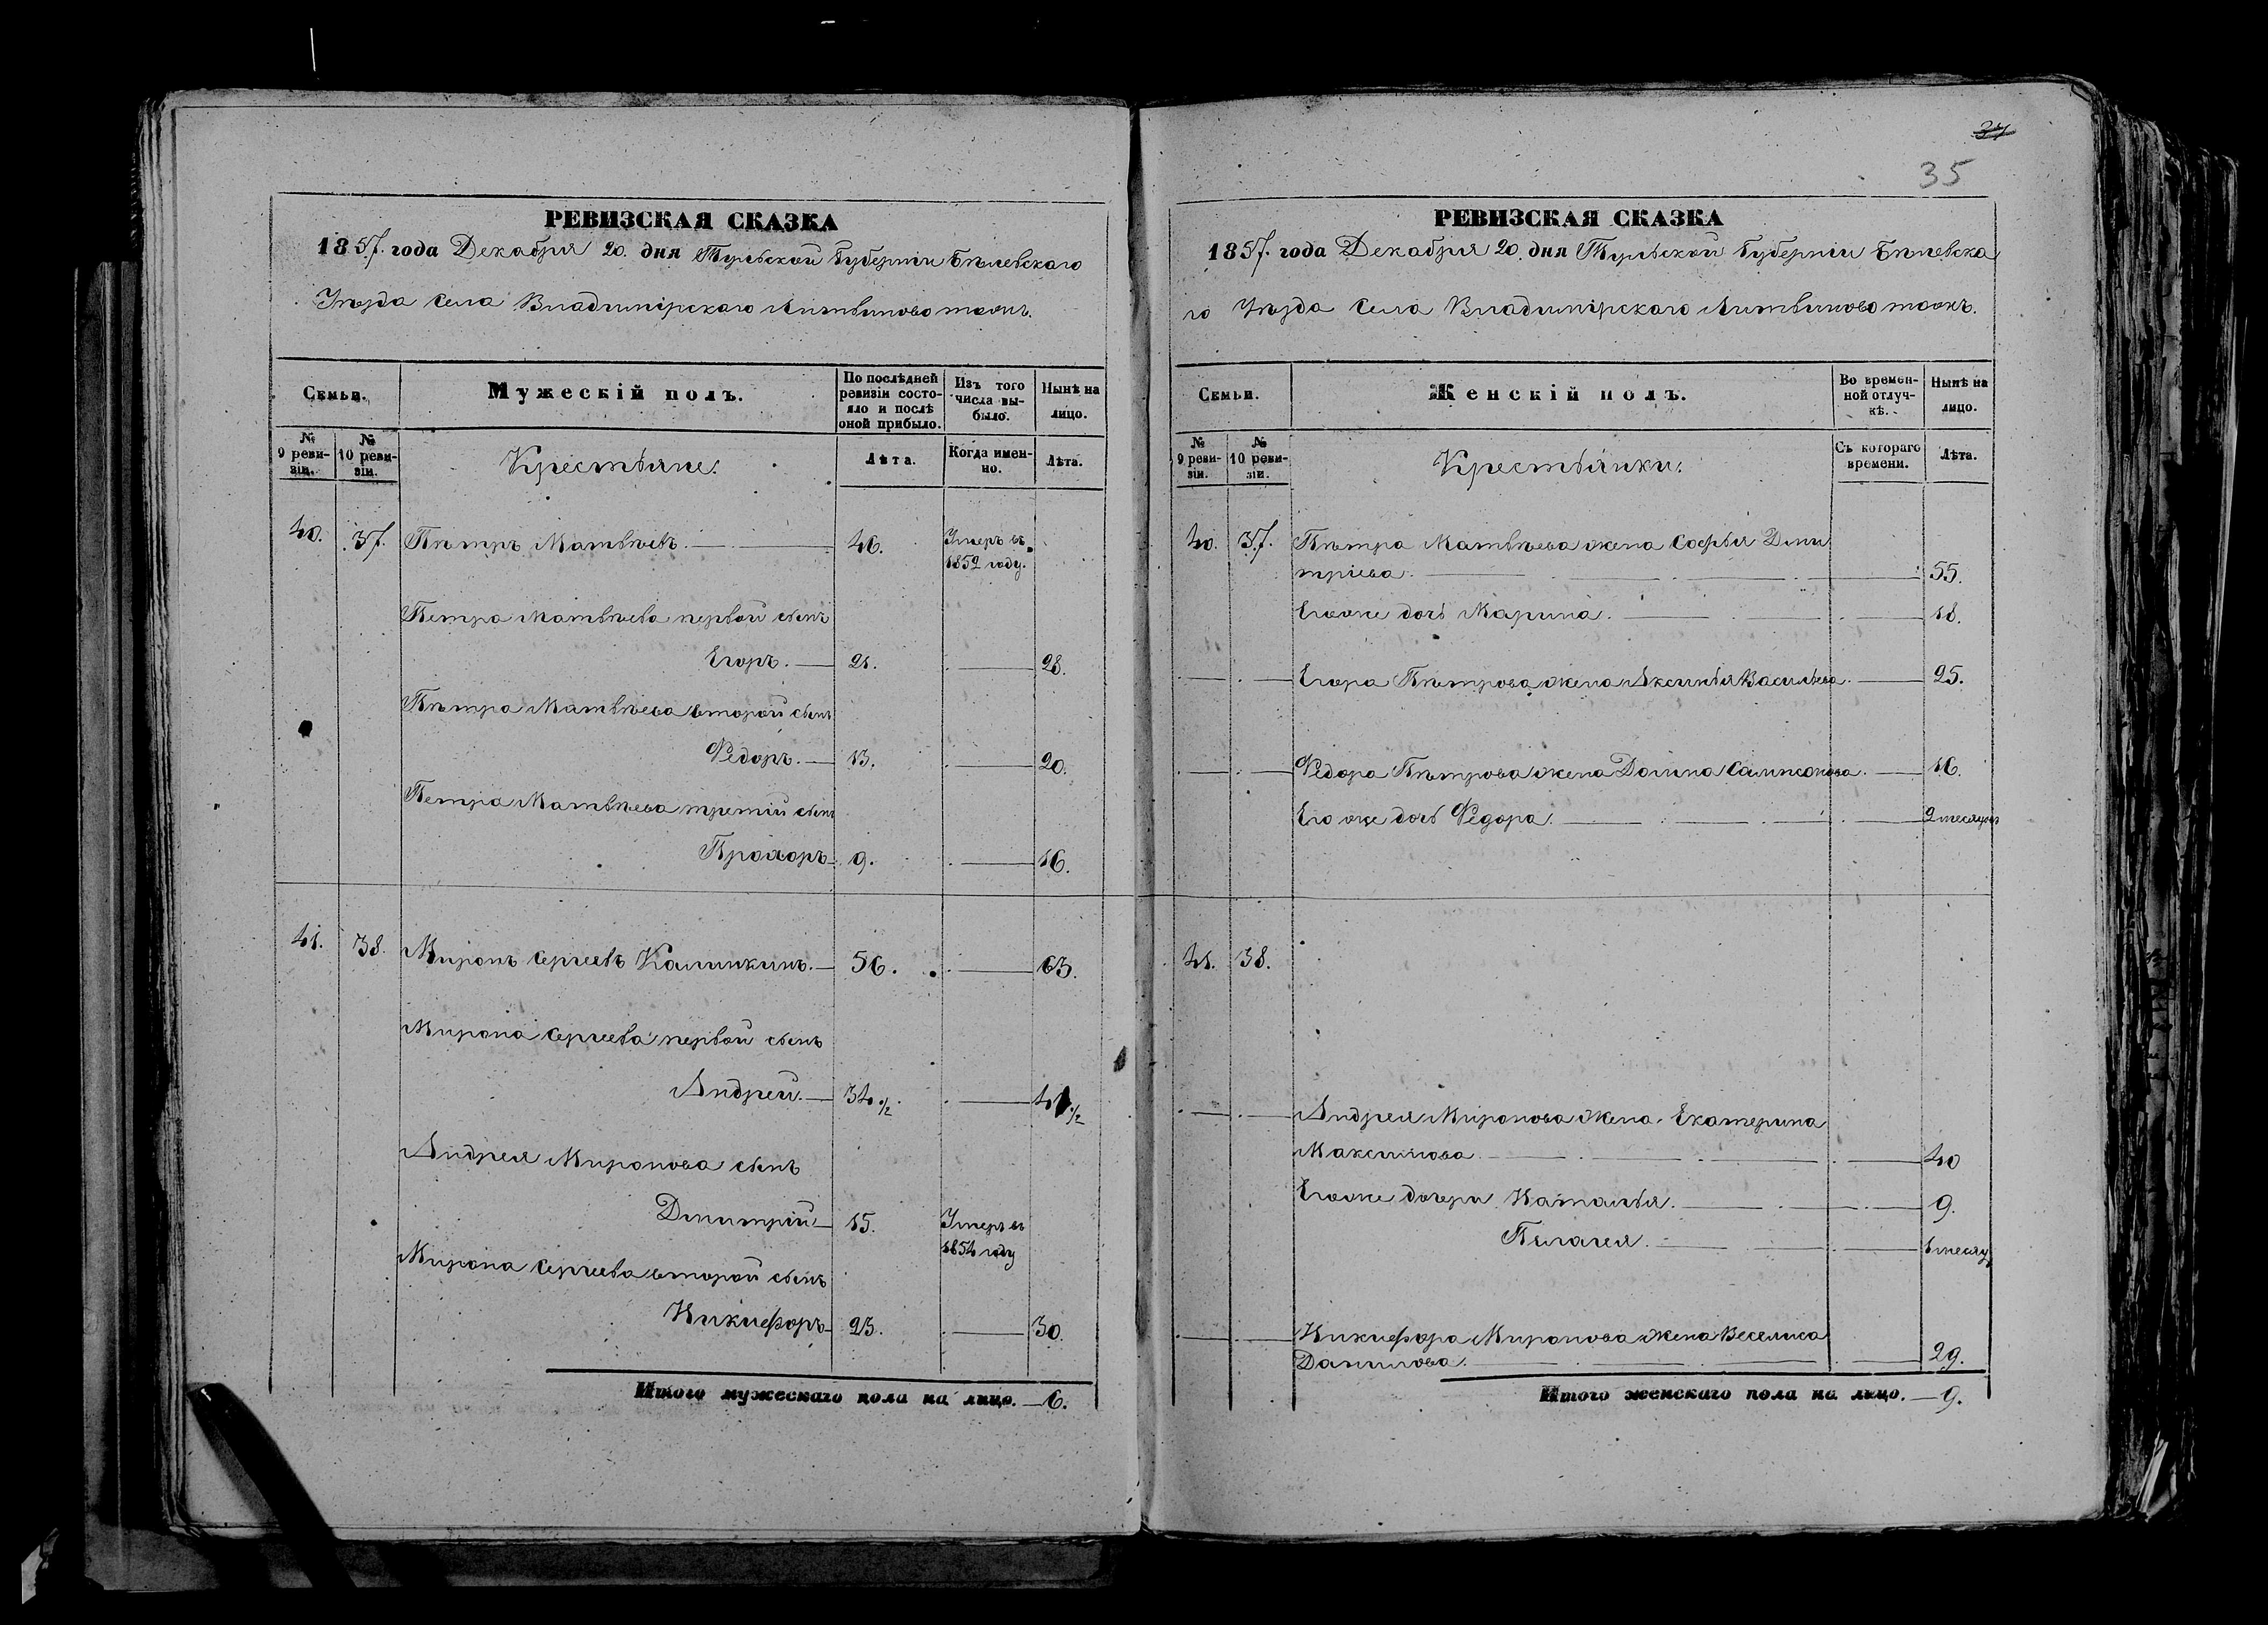 РЕВИЗСКАЯ СКАЗКА
1857. года Декабря 20. дня Тульской Губернiи Бѣлевскаго
Уѣзда Села Владимiрскаго Литвиново тожъ.
Семьи.
Мужескiй полъ.
По послѣдней ревизiи состояло и послѣ оной прибыло.
Изъ того числа выбыло.
Нынѣ на лицо.
№ 9 ревизiи.
№ 10 ревизiи.
Крестьяне.
Лѣта.
Когда именно.
Лѣта.
40. 37. Пѣтръ Матвѣевъ. 46. Умеръ въ
1852 году.
Петра Матвѣева первой сынъ
Егоръ. 21. 28.
Пѣтра Матвѣева второй сынъ
Федоръ. 13. 20.
Петра Матвѣева третiй сынъ
Прохоръ 9. 16.
41. 38. Миронъ Сергеевъ Калинкинъ. 56. 63.
Мирона Сергеева первой сынъ
Андрей. 34 1/2. 41 1/2
Андрея Миронова сынъ
Дмитрiй 15. Умеръ въ
1854 году
Мирона Сергеева второй сынъ
Никифоръ 23. 30.
Итого мужескаго пола на лицо. 6.
37
35
РЕВИЗСКАЯ СКАЗКА
1857. года Декабря 20. дня Тульской Губернiи Бѣлевска
го Уѣзда Села Владимiрскаго Литвиново тожъ.
Семьи.
Женскiй полъ.
Во временной отлучкѣ.
Нынѣ на лицо.
№ 9 ревизiи.
№ 10 ревизiи.
Крестьянки.
Съ котораго времени.
Лѣта.
40. 37. Пѣтра Матвѣева жена Софья Дми
трiева. 55.
Егоже дочь Марина. 18.
Егора Пѣтрова жена Аксинья Васильева. 25.
Федора Пѣтрова жена Домна Самисонова. 16.
Его же дочь Федора. 2 месяцовъ
41. 38.
Андрея Миронова жена. Екатерина
Максимова 40
Егоже дочери Наталья. 9.
Пелагея. 1 месяц
Никифора Миронова жена Веселиса
Данилова. 29.
Итого женскаго пола на лицо. 9.